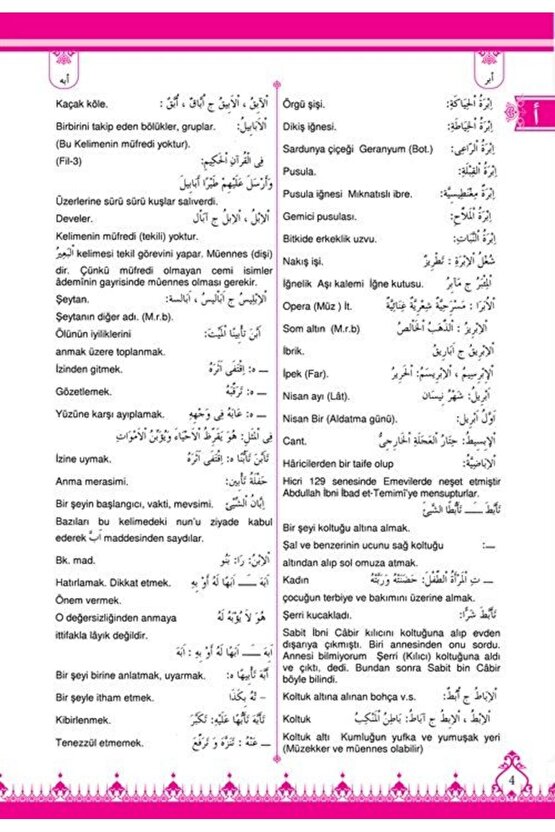 أبر
أبه
أ
إِبْرَةُ الْحِيَاكَةِ: Örgü şişi.
إِبْرَةُ الْخِيَاطَةِ: Dikiş iğnesi.
إِبْرَةُ الرَّاعِي: Sardunya çiçeği Geranyum (Bot.)
إِبْرَةُ الْقِبْلَةِ: Pusula.
إِبْرَةٌ مِغْنَطِيسِيَّةٌ: Pusula iğnesi Mıknatıslı ibre.
إِبْرَةُ الْمَلَّاحِ: Gemici pusulası.
إِبْرَةُ النَّبَاتِ: Bitkide erkeklik uzvu.
شُغْلُ الْإِبْرَةِ : تَطْرِيزٌ Nakış işi.
الْمِئْبَرُ ج مَآبِرُ: İğnelik Aşı kalemi İğne kutusu.
الْأُبَرَا : مَسْرَحِيَّةٌ شِعْرِيَّةٌ غِنَائِيَّةٌ Opera (Müz ) İt.
الْإِبْرِيزُ : الذَّهَبُ الْخَالِصُ Som altın (M.r.b)
الْإِبْرِيقُ ج أَبَارِيقُ: İbrik.
الْإِبْرِسِيمُ ، الْإِبْرِيسَمُ: الْحَرِيرُ İpek (Far).
أَبْرِيلُ: شَهْرُ نِيسَان Nisan ayı (Lât).
أَوَّلُ أَبْرِيلَ: Nisan Bir (Aldatma günü).
الْإِبْسِيطُ: حِتَارُ الْعَجَلَةِ الْخَارِجِيُّ Cant.
الْإِبَاضِيَّةُ: Hâricilerden bir taife olup
Hicri 129 senesinde Emevilerde neşet etmiştir
Abdullah İbni İbad et-Temimî'ye mensupturlar.
تَأَبَّطَ ـــ تَأَبُّطًا الشَّيْءَ
Bir şeyi koltuğu altına almak.
ـــ: Şal ve benzerinin ucunu sağ koltuğu
altından alıp sol omuza atmak.
ـــ تِ الْمَرْأَةُ الطِّفْلَ: حَضَنَتْهُ وَرَبَّتْهُ Kadın
çocuğun terbiye ve bakımını üzerine almak.
تَأَبَّطَ شَرًّا: Şerri kucakladı.
Sabit İbni Câbir kılıcını koltuğuna alıp evden
dışarıya çıkmıştı. Biri annesinden onu sordu.
Annesi bilmiyorum Şerri (Kılıcı) koltuğuna aldı
ve çıktı, dedi. Bundan sonra Sabit bin Câbir
böyle bilindi.
الْإِبَاطُ ج أُبُطٌ: Koltuk altına alınan bohça v.s.
الْإِبْطُ ، الْإِبِطُ ج آبَاطٌ: بَاطِنُ الْمَنْكِبِ Koltuk
Koltuk altı Kumluğun yufka ve yumuşak yeri
(Müzekker ve müennes olabilir)
الْآبِقُ ، الْأَبِيقُ ج أُبَّاقٌ ، أُبَّقٌ : Kaçak köle.
الْأَبَابِيلُ: Birbirini takip eden bölükler, gruplar.
(Bu Kelimenin müfredi yoktur).
فِي الْقُرْآنِ الْحَكِيمِ: (Fil-3)
وَأَرْسَلَ عَلَيْهِمْ طَيْرًا أَبَابِيلَ
Üzerlerine sürü sürü kuşlar salıverdi.
الْإِبْلُ ، الْإِبِلُ ج آبَالٌ Develer.
Kelimenin müfredi (tekili) yoktur.
الْبَعِيرُ kelimesi tekil görevini yapar. Müennes (dişi)
dir. Çünkü müfredi olmayan cemi isimler
âdeminin gayrisinde müennes olması gerekir.
الْإِبْلِيسُ ج أَبَالِيسُ ، أَبَالِسَةٌ: Şeytan.
Şeytanın diğer adı. (M.r.b)
أَبَّنَ تَأْبِينًا الْمَيِّتَ: Ölünün iyiliklerini
anmak üzere toplanmak.
ـــ ه: اِقْتَفَى أَثَرَهُ İzinden gitmek.
ـــ ه: تَرَقَّبَهُ Gözetlemek.
ـــ ه: عَابَهُ فِي وَجْهِهِ Yüzüne karşı ayıplamak.
فِي الْمَثَلِ: هُوَ يُقَرِّظُ الْأَحْيَاءَ وَيُؤَبِّنُ الْأَمْوَاتِ
تَأَبَّنَ تَأَبُّنًا ه: اِقْتَفَى أَثَرَهُ İzine uymak.
حَفْلَةُ تَأْبِينٍ: Anma merasimi.
إِبَّانُ الشَّيْءِ: Bir şeyin başlangıcı, vakti, mevsimi.
Bazıları bu kelimedeki nun'u ziyade kabul
ederek أَبَّ maddesinden saydılar.
الْاِبْنُ: رَا: بَنُو Bk. mad.
أَبَهَ ـــ أَبْهًا لَهُ أَوْ بِهِ Hatırlamak. Dikkat etmek.
Önem vermek.
هُوَ لَا يُؤْبَهُ لَهُ O değersizliğinden anmaya
ittifakla lâyık değildir.
أَبِهَ ـــ أَبَهًا لَهُ أَوْ بِهِ : أَبَهَ
أَبَّهَ تَأْبِيهًا ه: Bir şeyi birine anlatmak, uyarmak.
ـــ لَهُ بِكَذَا Bir şeyle itham etmek.
تَأَبَّهَ تَأَبُّهًا عَلَيْهِ: تَكَبَّرَ Kibirlenmek.
ـــ عَنْهُ : تَنَزَّهَ وَ تَرَفَّعَ Tenezzül etmemek.
4